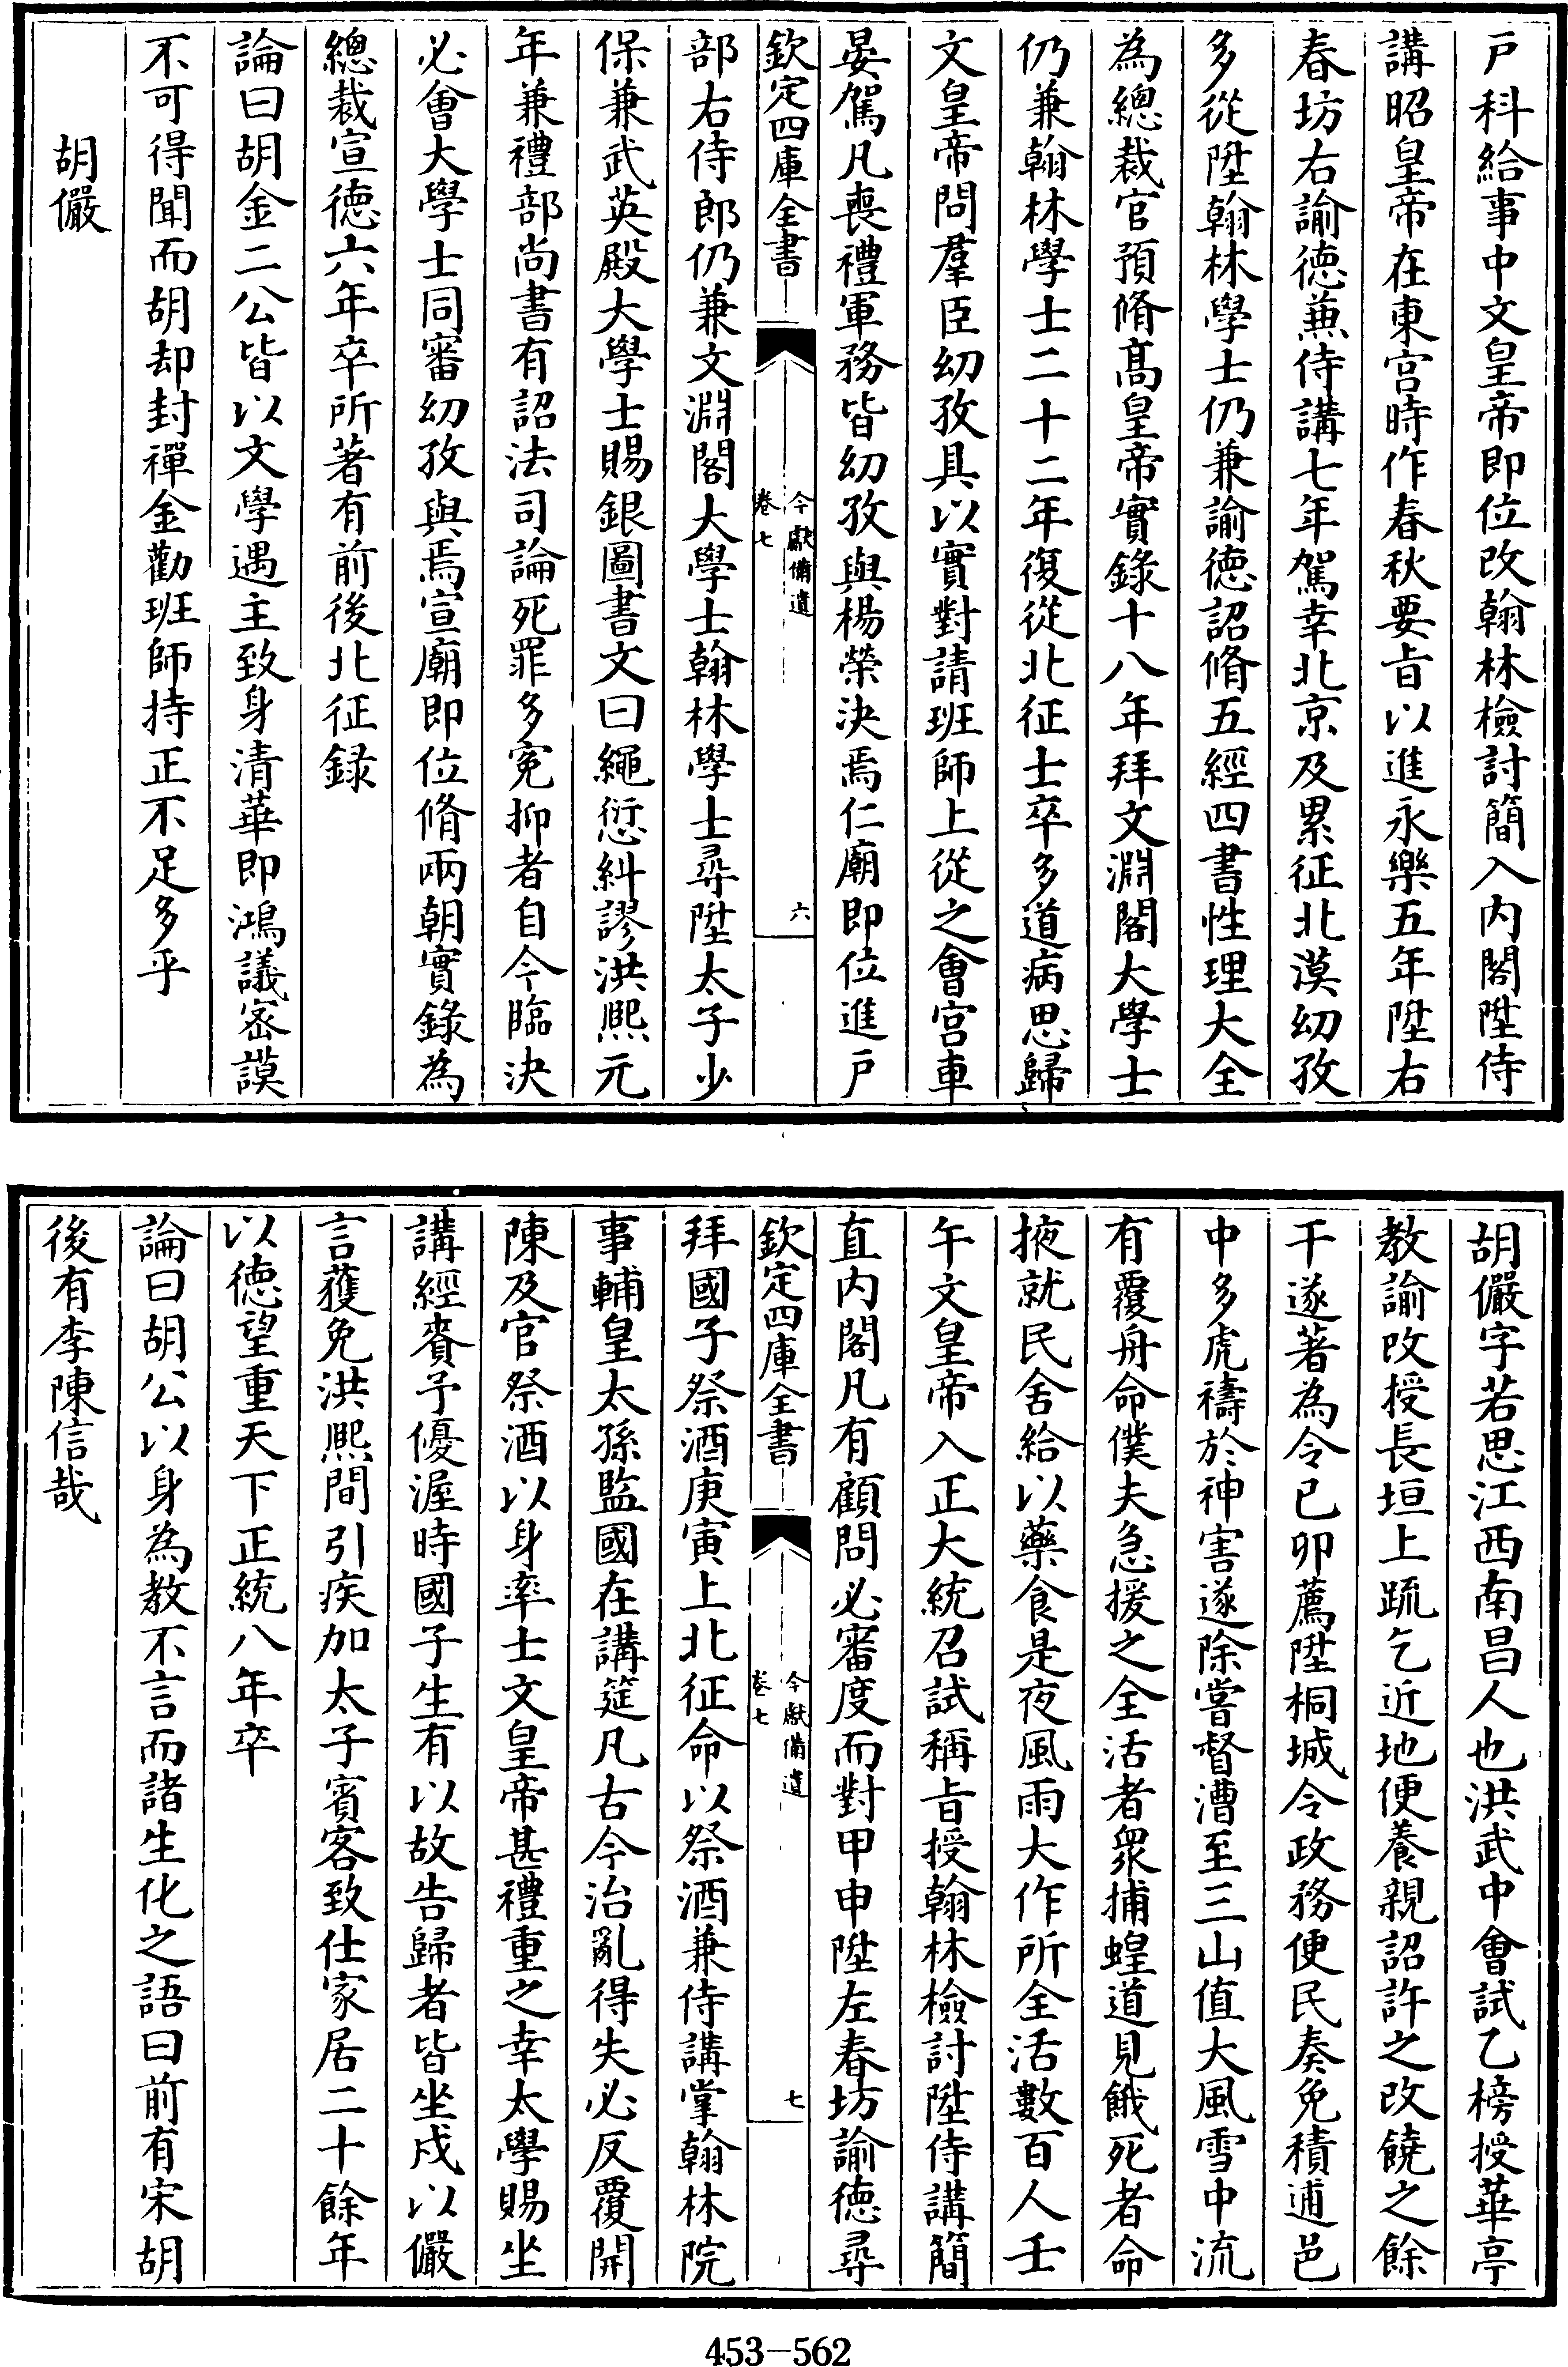 戸科給事中文皇帝即位改翰林檢討簡入内閣陞侍
講昭皇帝在東宫時作春秋要㫖以進永樂五年陞右
春坊右諭徳兼侍講七年駕幸北京及累征北漠幼孜
多從陞翰林學士仍兼諭徳詔脩五經四書性理大全
為總裁官預脩髙皇帝實錄十八年拜文淵閣大學士
仍兼翰林學士二十二年復從北征士卒多道病思歸
文皇帝問羣臣幼孜具以實對請班師上從之會宫車
晏駕凡喪禮軍務皆幼孜與楊榮決焉仁廟即位進戸
欽定四庫全書
今獻備遺
卷七
六
部右侍郎仍兼文淵閣大學士翰林學士尋陞太子少
保兼武英殿大學士賜銀圖書文曰繩愆糾謬洪熙元
年兼禮部尚書有詔法司論死罪多寃抑者自今臨決
必會大學士同審幼孜與焉宣廟即位脩兩朝實錄為
總裁宣徳六年卒所著有前後北征録
論曰胡金二公皆以文學遇主致身清華即鴻議宻謨
不可得聞而胡却封禪金勸班師持正不足多乎
胡儼
胡儼字若思江西南昌人也洪武中會試乙榜授華亭
教諭改授長垣上疏乞近地便養親詔許之改饒之餘
干遂著為令已卯薦陞桐城令政務便民奏免積逋邑
中多虎禱於神害遂除嘗督漕至三山值大風雪中流
有覆舟命僕夫急援之全活者衆捕蝗道見餓死者命
掖就民舍給以藥食是夜風雨大作所全活數百人壬
午文皇帝入正大統召試稱㫖授翰林檢討陞侍講簡
直内閣凡有顧問必審度而對甲申陞左春坊諭徳尋
欽定四庫全書
今獻備遺
卷七
七
拜國子祭酒庚寅上北征命以祭酒兼侍講掌翰林院
事輔皇太孫監國在講筵凡古今治亂得失必反覆開
陳及官祭酒以身率士文皇帝甚禮重之幸太學賜坐
講經賚予優渥時國子生有以故告歸者皆坐戍以儼
言獲免洪熙間引疾加太子賓客致仕家居二十餘年
以徳望重天下正統八年卒
論曰胡公以身為教不言而諸生化之語曰前有宋胡
後有李陳信哉
453-562